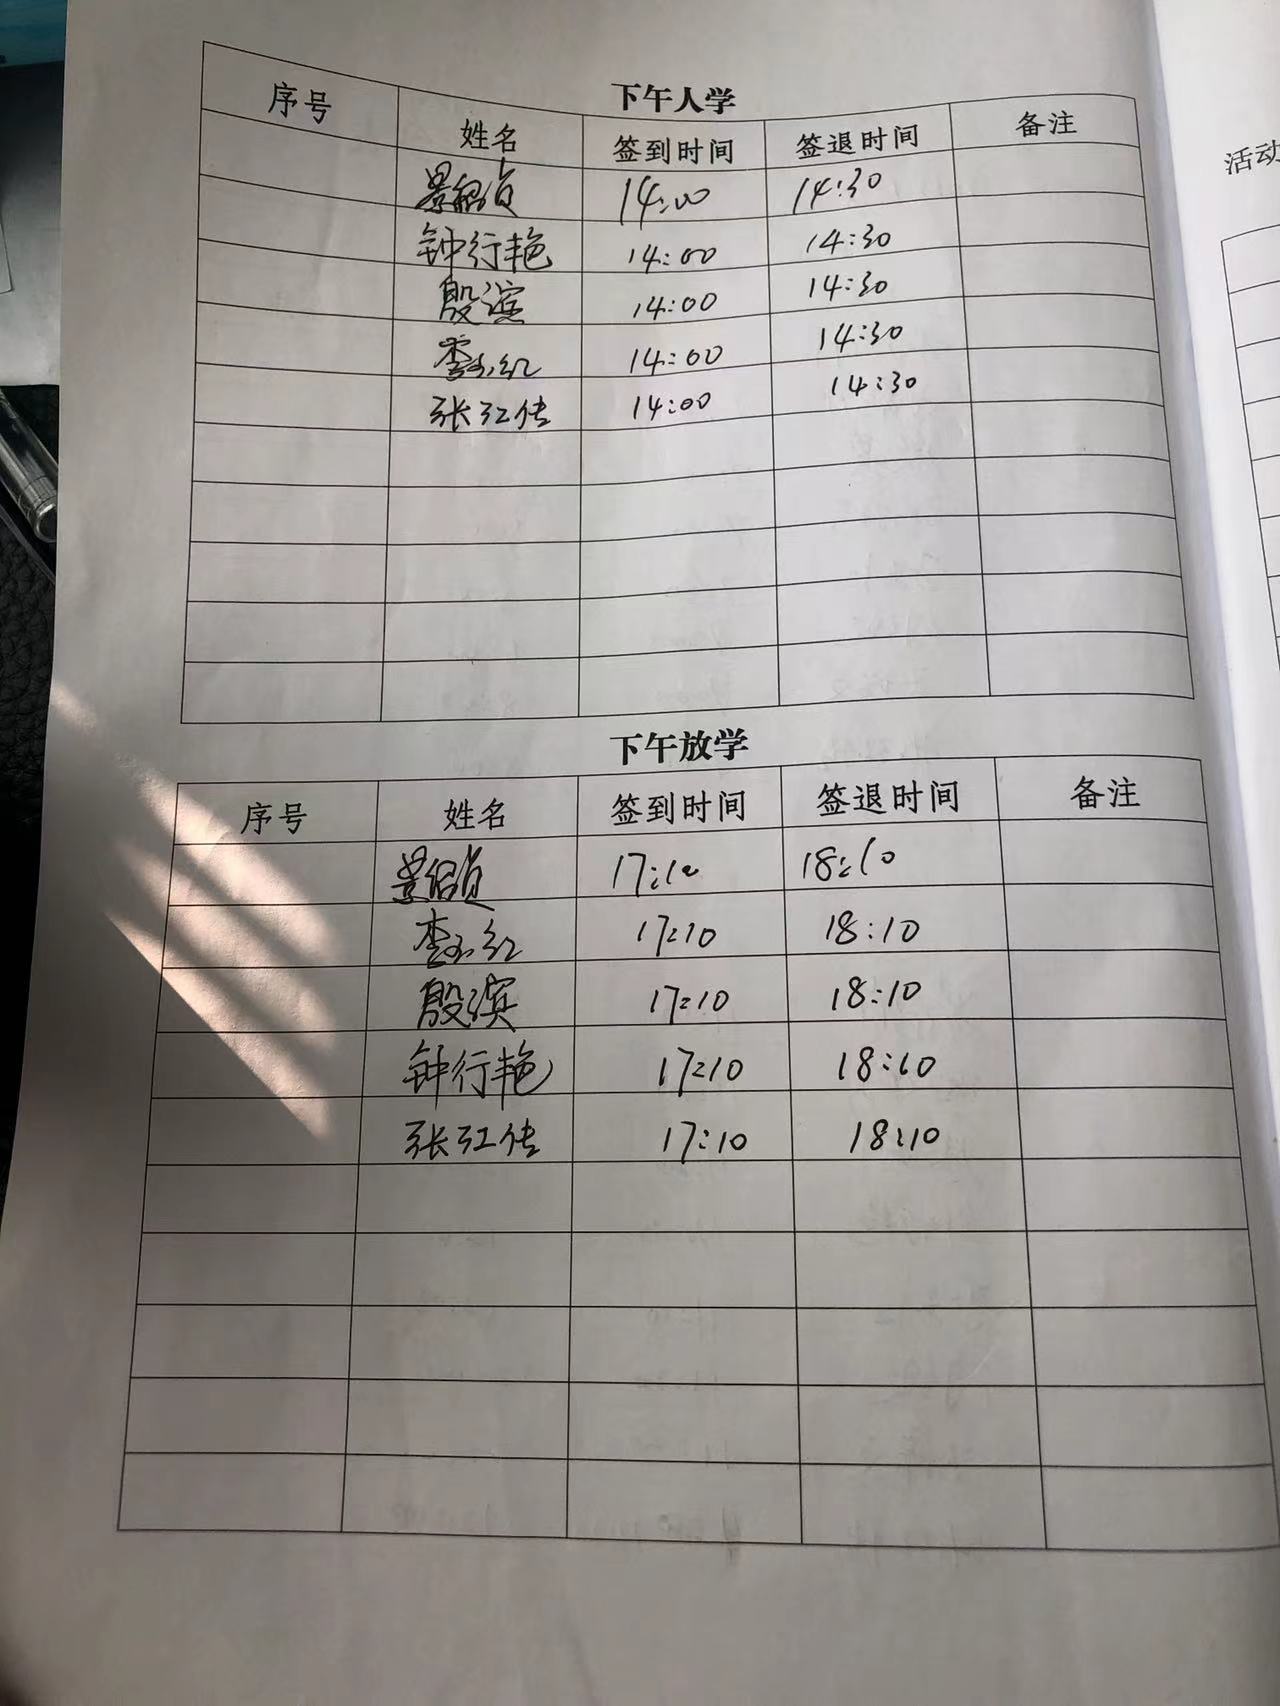 下午入学
序号 姓名 签到时间 签退时间 备注
14:00 14:30
钟行艳 14:00 14:30
殷滨 14:00 14:30
李玉红 14:00 14:30
张江传 14:00 14:30
下午放学
序号 姓名 签到时间 签退时间 备注
17:10 18:10
李玉红 17:10 18:10
殷滨 17:10 18:10
钟行艳 17:10 18:10
张江传 17:10 18:10
活动